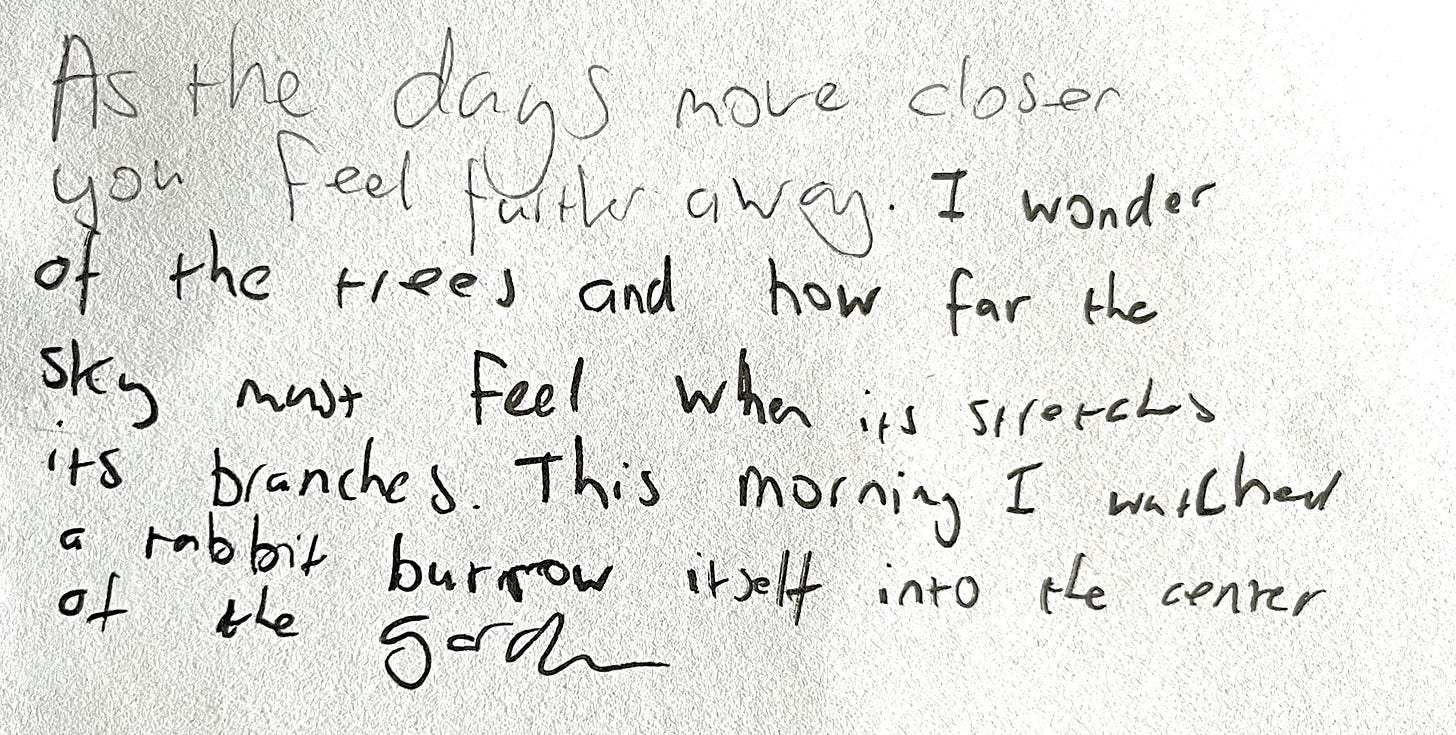 As the days move closer
you feel further away. I wonder
of the trees and how far the
sky must feel when its stretches
its branches. This morning I watched
a rabbit burrow itself into the center
of the garden